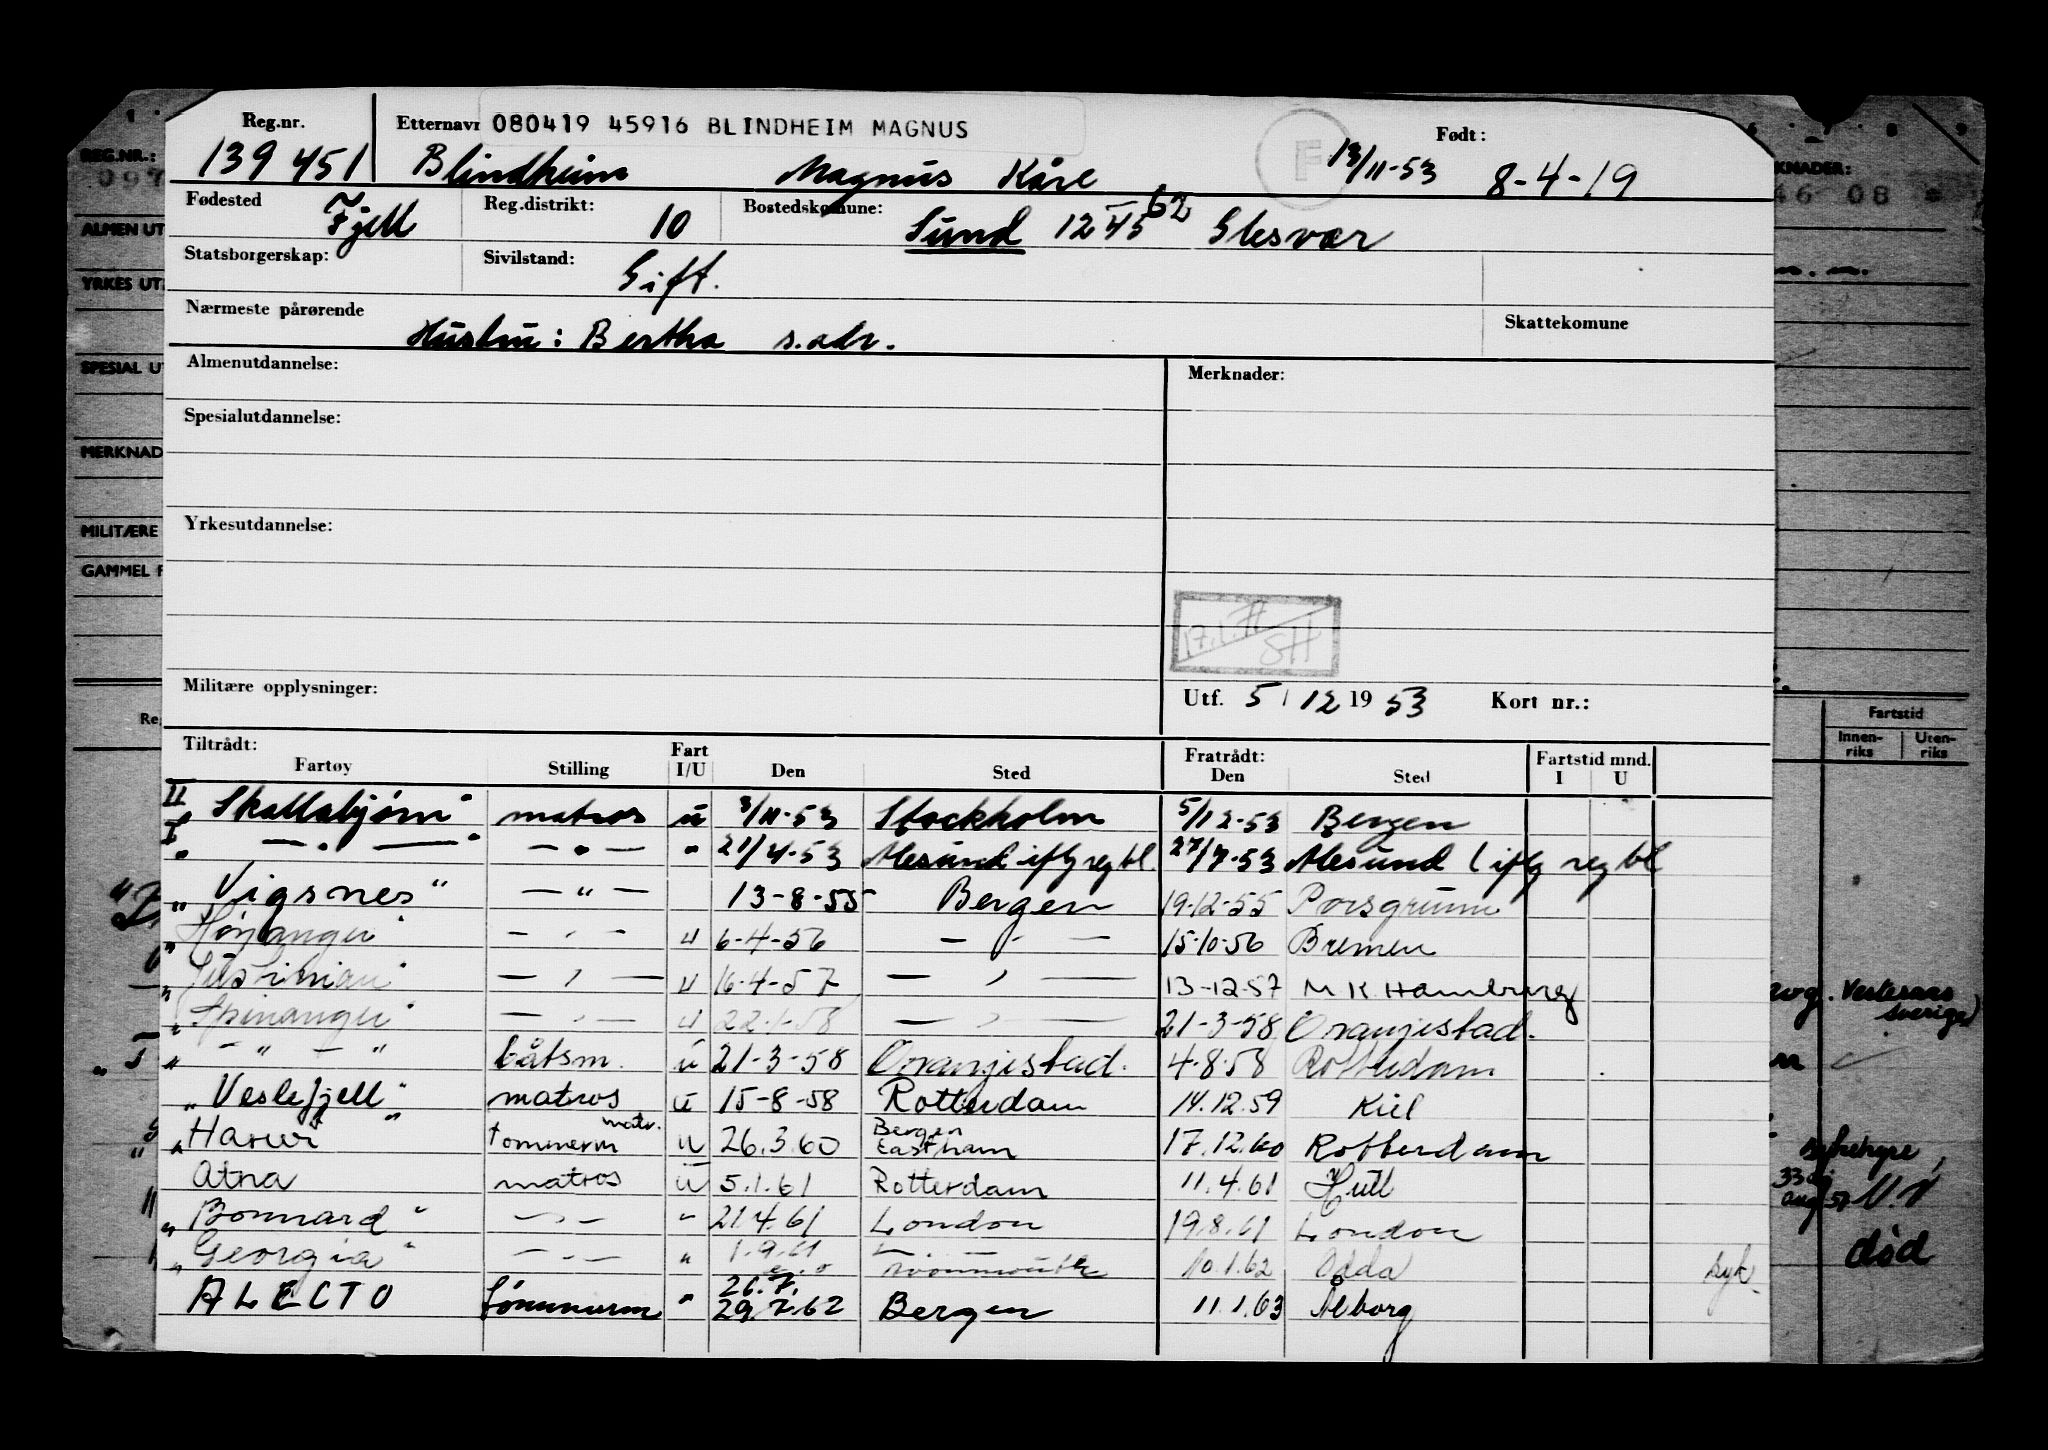 Reg.nr. Etternavn 080419 45916 BLINDHEIM MAGNUS F Født:
139 451 Blindheim Magnus Kåre 13/11-53 8-4-19
Fødested Fjell Reg.distrikt: 10 Bostedskomune: Sund 1245 62 Glesvær
Statsborgerskap: Sivilstand: Gift.
Nærmeste pårørende Hustru: Bertha s.adr. Skattekomune
Almenutdannelse: Merknader:
Spesialutdannelse:
Yrkesutdannelse:
17.1.71 SH
Militære opplysninger: Utf. 5/12 1953 Kort nr.:
Tiltrådt: Fartøy Stilling Fart I/U Den Sted Fratrådt: Den Sted Fartstid mnd. I U
II "Skallabjørn" matros u 3/11-53 Stockholm 5/12-53 Bergen
I — " — — " — " 21/4-53 Ålesund iflg reg bl. 27/7-53 Ålesund (iflg reg bl
"Vigsnes" — " — 13-8-55 Bergen 19-12-55 Porsgrunn
"Høyanger" — " — u 6-4-56 — " — 15-10-56 Bremen
— " — u 16-4-57 — " — 13-12-57 M K Hamburg
"Spinanger" — " — u 22-1-58 — " — 21-3-58 Oranjestad.
— " — " båtsm. u 21-3-58 Oranjestad. 4-8-58 Rotterdam
"Veslefjell" matros u 15-8-58 Rotterdam 14.12.59 Kiel
tømmerm matr. u 26.3.60 Bergen Eastham 17.12.60 Rotterdam
Atna matros u 5.1.61 Rotterdam 11.4.61 Hull
"Bonnard" — " — " 21.4.61 London 19.8.61 London
"Georgia" — " — " 1.9.61 — " — 10.1.62 Odda syk
ALECTO tømmerm " 26.7. 29.7.62 Bergen 11.1.63 Ålborg
REG.NR.:
097
ALMEN UT
YRKES UT
SPESIAL UT
MERKNAD
MILITÆRE
GAMMEL F
KNADER:
46 08
Fartstid
Innen-riks Uten-riks
Sverige)
død